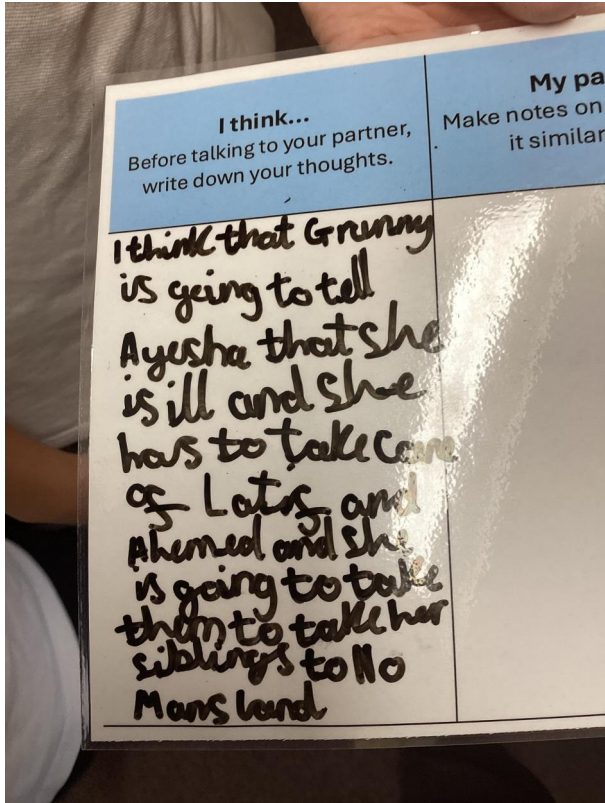 I think...
Before talking to your partner,
write down your thoughts.
My pa
Make notes on
it similar
I think that Granny
is going to tell
Ayesha that she
is ill and she
has to take care
of Latif and
Ahemed and she
is going to take
them to take her
siblings to No
Mans land